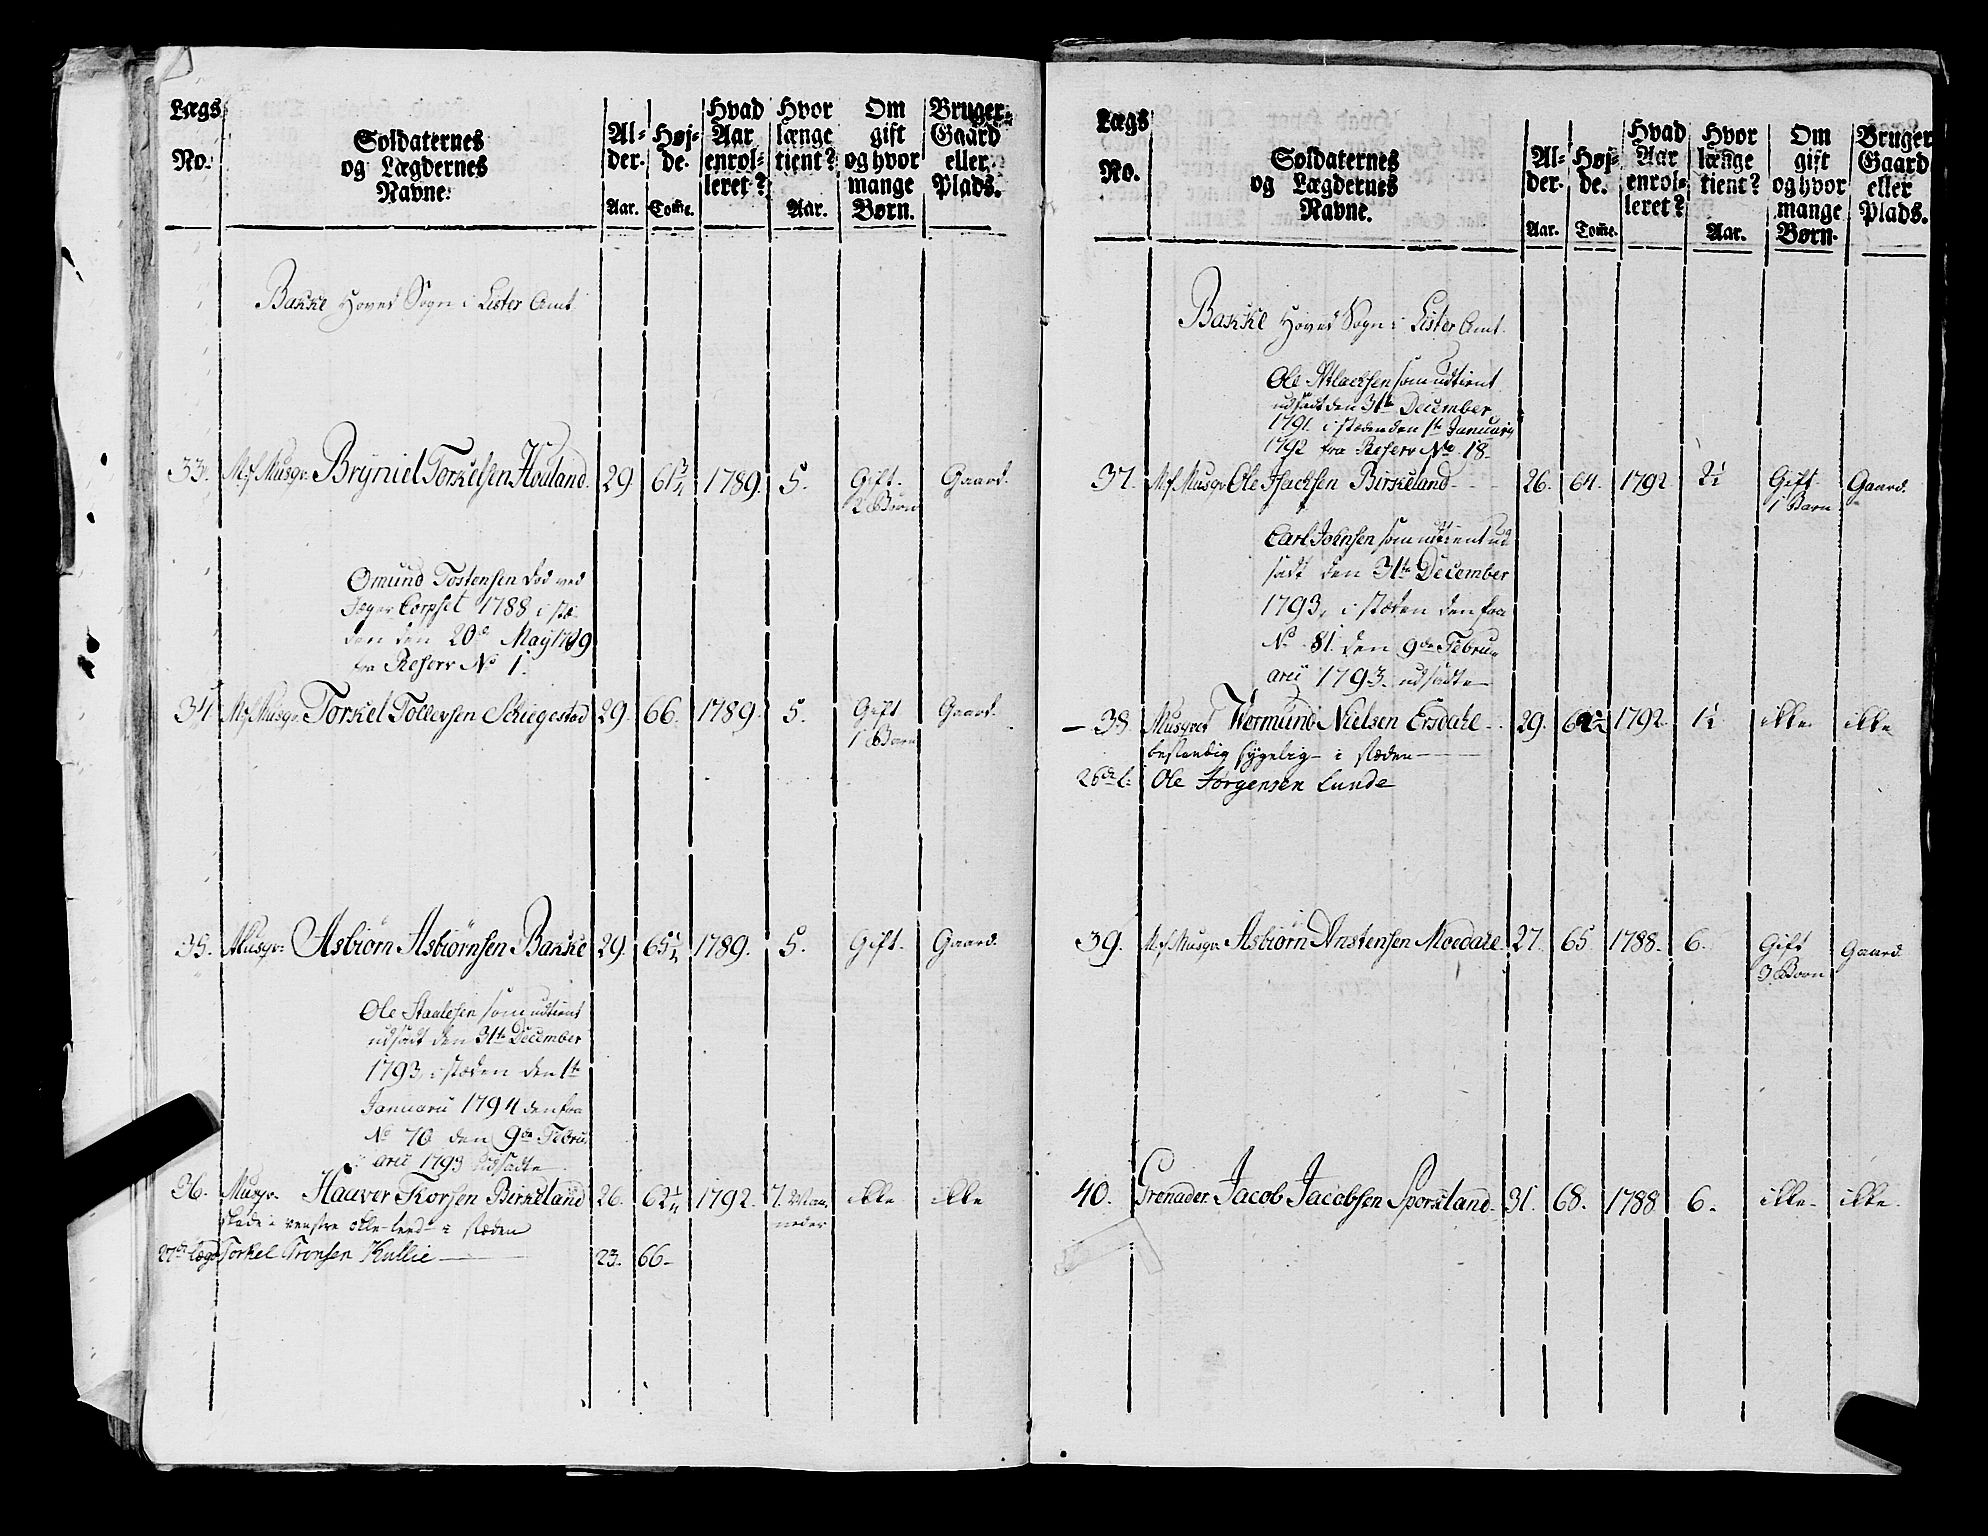 Lægs No.
Soldaternes og Lægdernes Navne.
Al-der. Aar.
Høj-de. Tom̄e.
Hvad Aar enrol-leret?
Hvor længe tient? Aar.
Om gift og hvor mange Børn.
Bruger Gaard eller Plads.
Bakke Hoved Sogn i Lister Amt
33. Mf. Musqr. Bryniel Torkelsen Houland 29 1789. 5. Gift. Gaard.
2 Børn
Omund Tostensen død ved
Jeger Corpset 1788 i stæ-
den den 20de May 1789
fra Reserv No 1.
34 Mf. Musqr. Torkel Tollevsen Schiegestad 29. 66. 1789. 5. Gift Gaard.
1 Barn
35. Musqr: Asbiørn Asbiørnsen Bakke 29. 65 1/4 1789. 5. Gift. Gaard.
Ole Staalesen som udtient
udsadt den 31te December
1793, i stæden den 1te
Januarii 1794 den fra
No 70 den 9de Febru
arii 1793 udsadte
36. Musqr. Haaver Torsen Birkeland 26. 62 1/4 1792. 7. Maa- ikke ikke
neder
skade i venstre i stæden
27de Lægd Torkel Tronsen Kullie 23. 66.
Lægs No.
Soldaternes og Lægdernes Navne.
Al-der. Aar.
Høj-de. Tom̄e.
Hvad Aar enrol-leret?
Hvor længe tient? Aar.
Om gift og hvor mange Børn.
Bruger Gaard eller Plads.
Bakke Hoved Sogn i Lister Amt.
Ole Atlachsen som udtient
udsadt den 31te December
1791 i stæden den 1te Januarij
1792 fra Reserv No 18.
37. Mf. Musqr Ole Isachsen Birkeland 26. 64. 1792 2 1/2 Gift. Gaard.
1 Barn
Carl Johnsen som udtient ud
sadt den 31te December
1793, i stæden den fra
No 81. den 9de Febru
arii 1793. udsadte
38. Musqvet Wermund Nielsen Ersdale 29. 1792. 1 1/2 ikke ikke
bestandig sygelig i stæden
26de L: Ole Jørgensen Lunde
39. Mf. Musqr. Asbiørn Anstensen Moedale. 27. 65. 1788. 6. Gift Gaard
3 Børn
40. Grenader. Jacob Jacobsen Sporkland 31. 68. 1788 6. ikke. ikke.